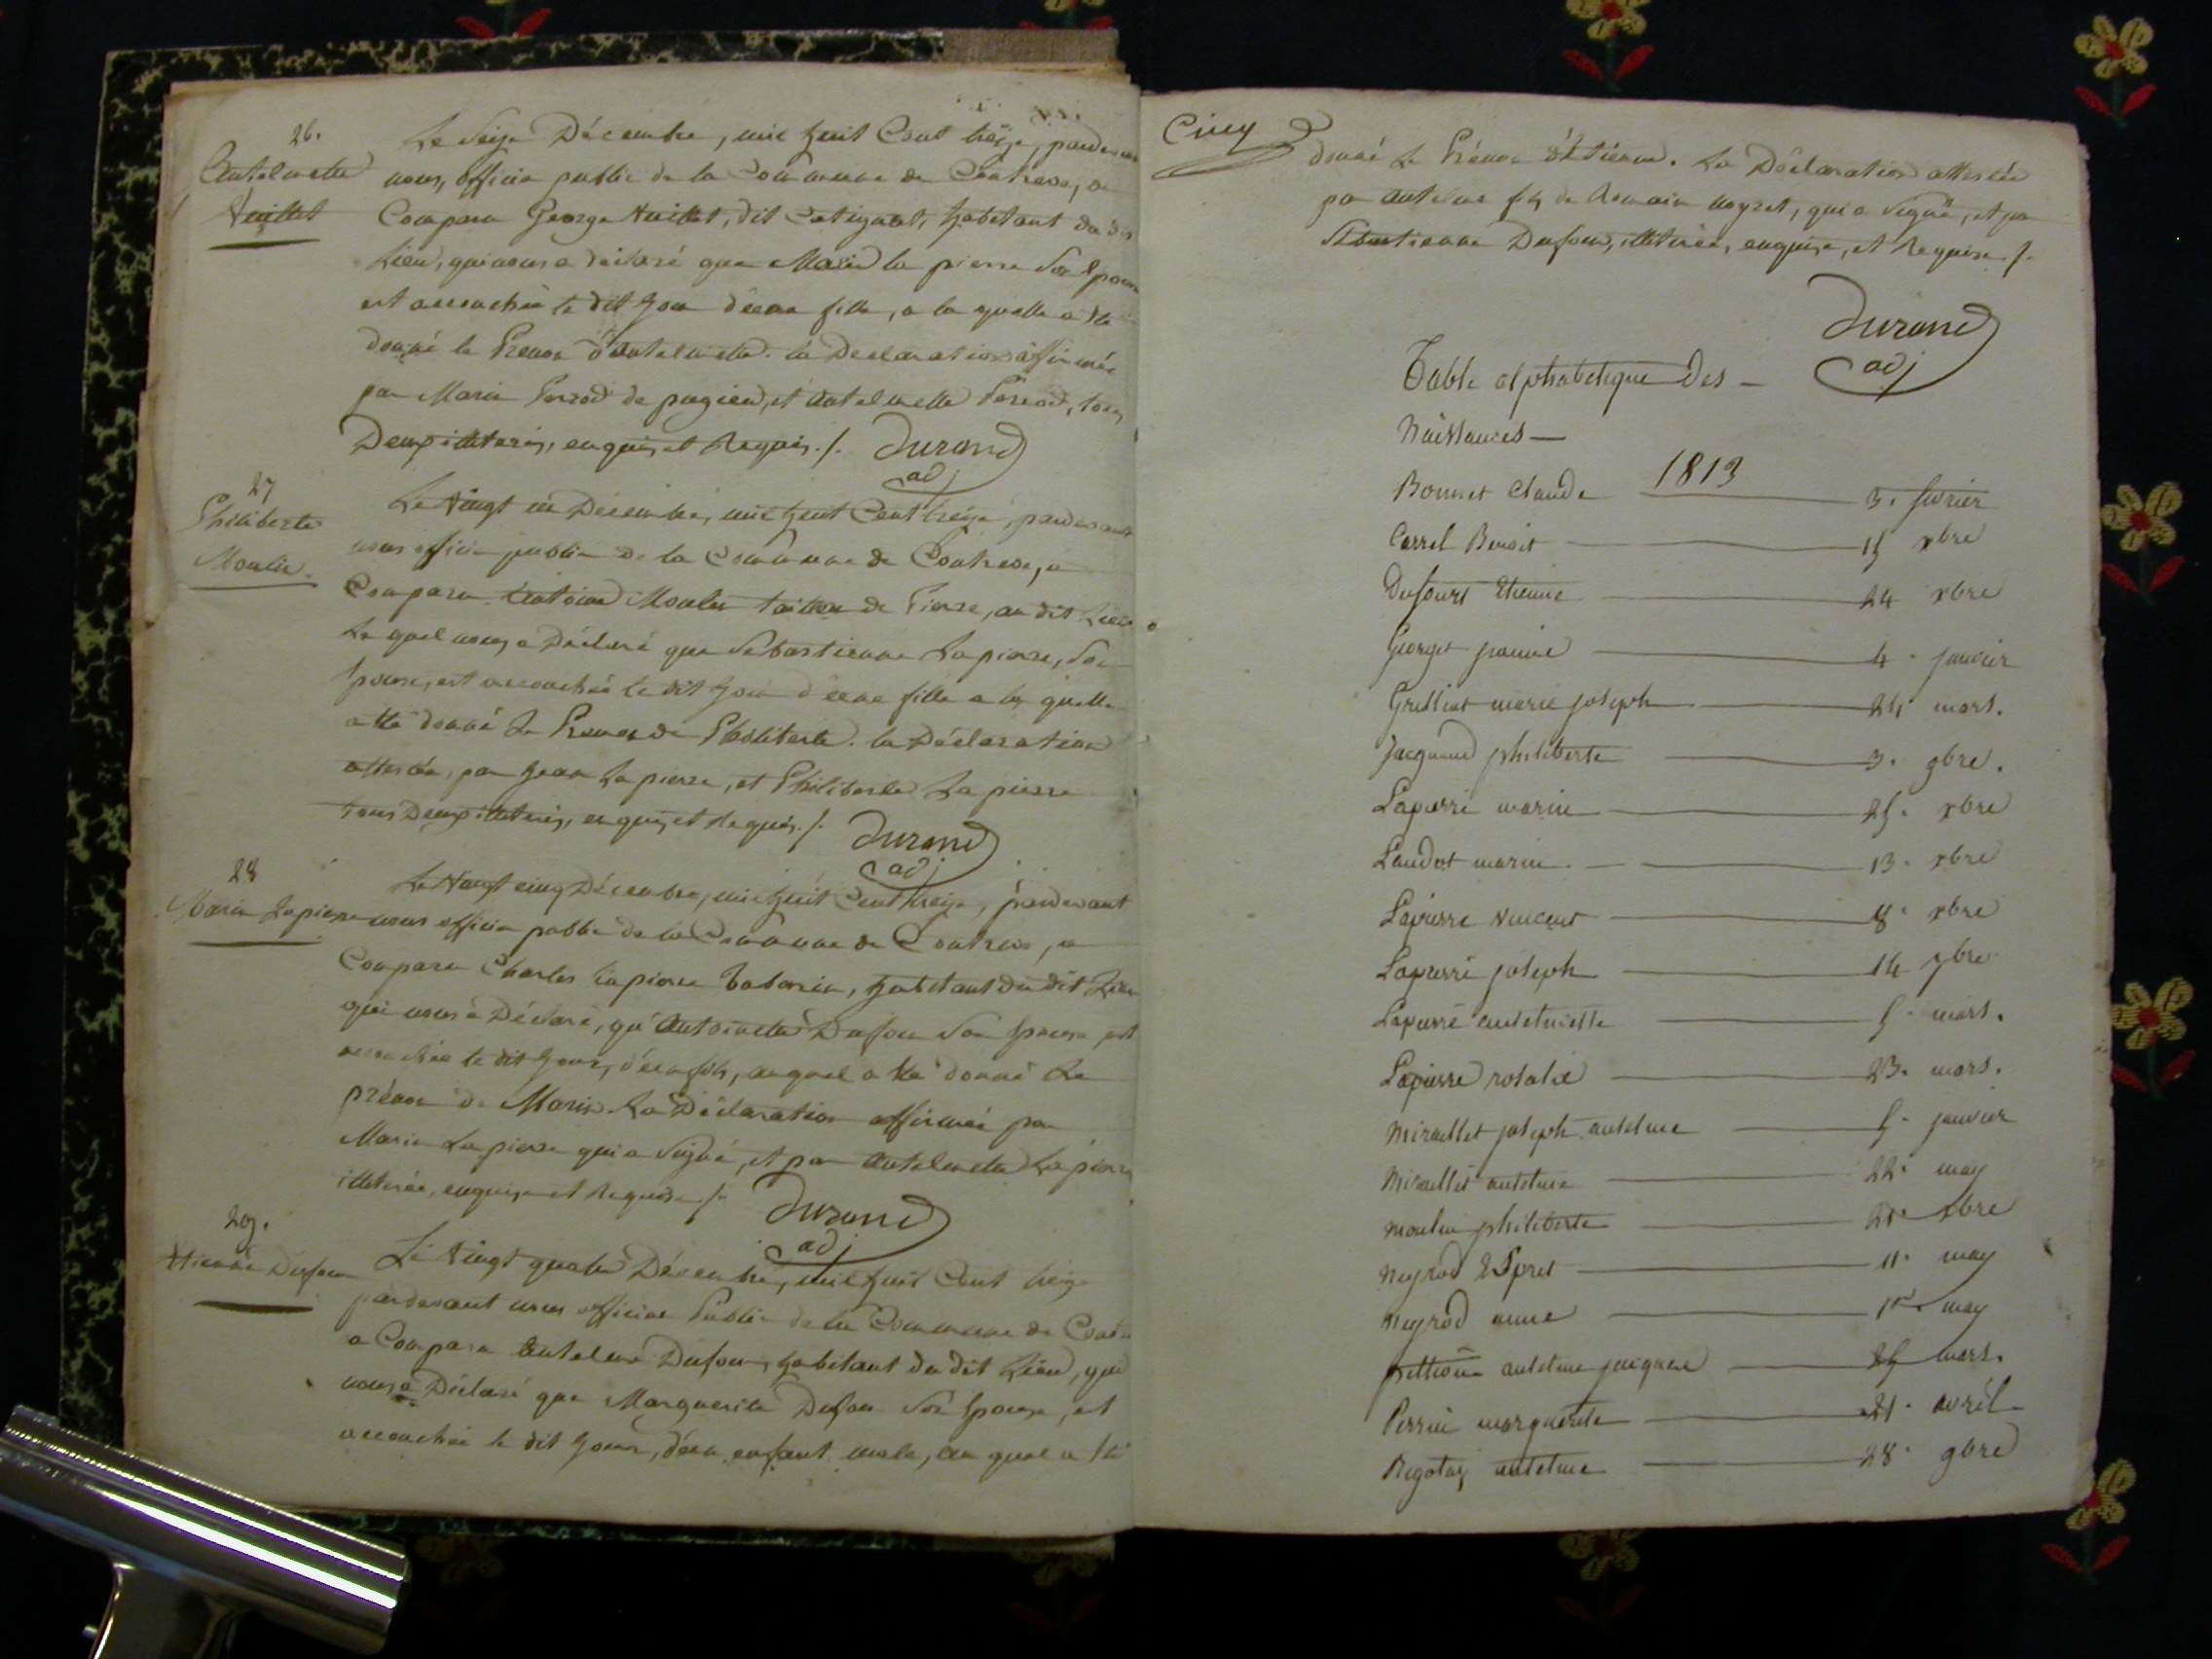 26.
Antelmette
Vuillet
Le Seize Décembre, mil huit Cent treize, pardevant
nous, officier public de la Commune de Contrevo, a
Comparu George Vuillet, dit Catignat, habitant du dit
Lieu, qui nous a déclaré que Marie la pierre Son Epouse
est accouchée le dit Jour d'une fille, a la quelle a été
donné le Prenom d'Antelmette. la Declaration affirmée
par Marie Perrod de pugieu, et Antelmette Perrod, tous
Deux illiteris, enquis et Requis ./. Durand
adj
27
Philiberte
Moulin
Le Vingt un Decembre, mil huit Cent treize, pardevant
nous officier public de la Commune de Contrevo, a
Comparu Antoine Moulin tailleur de Pierre, au dit Lieu
Le quel nous a Déclaré que Sebastienne Lapierre, Son
Epouse, est accouchée le dit Jour d'une fille a la quelle
a été donné Le Prenom de Philiberte. la Déclaration
attestée, par Jean La pierre, et Philiberte La pierre
tous Deux illiteris, enquis et Requis ./. Durand
adj
28
Marin Lapierre
Le Vingt cinq Décembre, mil huit Cent treize, pardevant
nous officier public de la Commune de Contrevo, a
Comparu Charles la pierre, habitant du dit Lieu
qui nous a Déclaré, qu'Antoinette Dufour Son Epouse est
accouchée le dit Jour, d'un fils, auquel a été donné Le
prénom de Marin. La Déclaration affirmée par
Marin La pierre qui a Signé, et par Antelmette La pierre
illiterée, enquise et Requise ./. Durand
adj
29.
Etienne Dufour
Le Vingt quatre Décembre, mil huit Cent treize
pardevant nous officier Public de la Commune de
a Comparu Antelme Dufour, habitant du dit Lieu, qui
nous a Déclaré que Marguerite Dufour Son Epouse, est
accouchée le dit Jour, d'un enfant male, au quel a été
Cinq
donné Le Prénom d'Etienne. La Déclaration attestée
par Antelme fils de Romain, qui a Signé, et par
Sebastienne Dufour, illiterée, enquise, et Requise ./.
Durand
adj
Table alphabetique Des —
Naissances —
1813
Bonnet Claude — 3. fevrier
Carrel Benoit — 15 xbre
Dufourt Etienne — 24 xbre
Georget jeanne — 4. janvier
Grilliat marie joseph — 24 mars.
Jacquand philiberte — 3. 9bre.
Lapierre marin — 25. xbre
Laudet marin — 13. xbre
Lapierre vincent — 8. xbre
Lapierre joseph — 14 7bre
Lapierre antelmette — 5. mars.
Lapierre rosalie — 23. mars.
Miraillet joseph antelme — 5. janvier
Miraillet antelme — 22. may
moulin philiberte — 21. xbre
Neyrod Espret — 11. may
Neyrod anne — 1er. may
antelme jacques — 25 mars.
Perrin marguerite — 21. avril
Rigotaz antelme — 28. 9bre